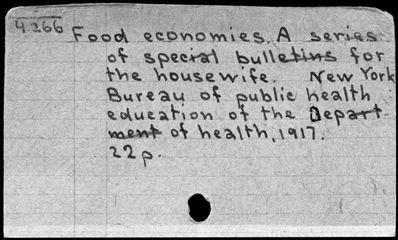 4266
Food economies. A series
of special bulletins for
the housewife. New York
Bureau of public health
education of the Depart-
ment of health, 1917.
22p.